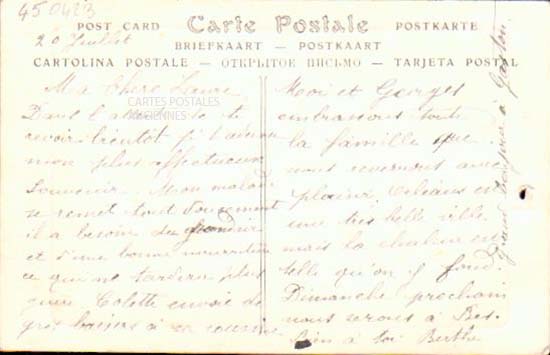 450423
POST CARD Carte Postale POSTKARTE
BRIEFKAART — POSTKAART
CARTOLINA POSTALE — ОТКРЫТОЕ ПИСЬМО — TARJETA POSTAL
20 Juillet
Ma Chère Laure
CARTES POSTALES
ANCIENNES
Dans l'attente de te
revoir bientôt je t'envoie
mon plus affectueux
souvenir. Mon malade
se remet tout doucement
il a besoin de grandir
et d'une bonne nourriture
ce qui ne tardera plus
guère Colette envoie de
gros baisers à sa cousine
Moi et Georges
embrassons toute
la famille que
nous reverrons avec
plaisir. Orléans est
une très belle ville
mais la chaleur est
telle qu'on y fond.
Dimanche prochain
nous serons à
bien à toi Berthe
Grand bonjour à Gaston.